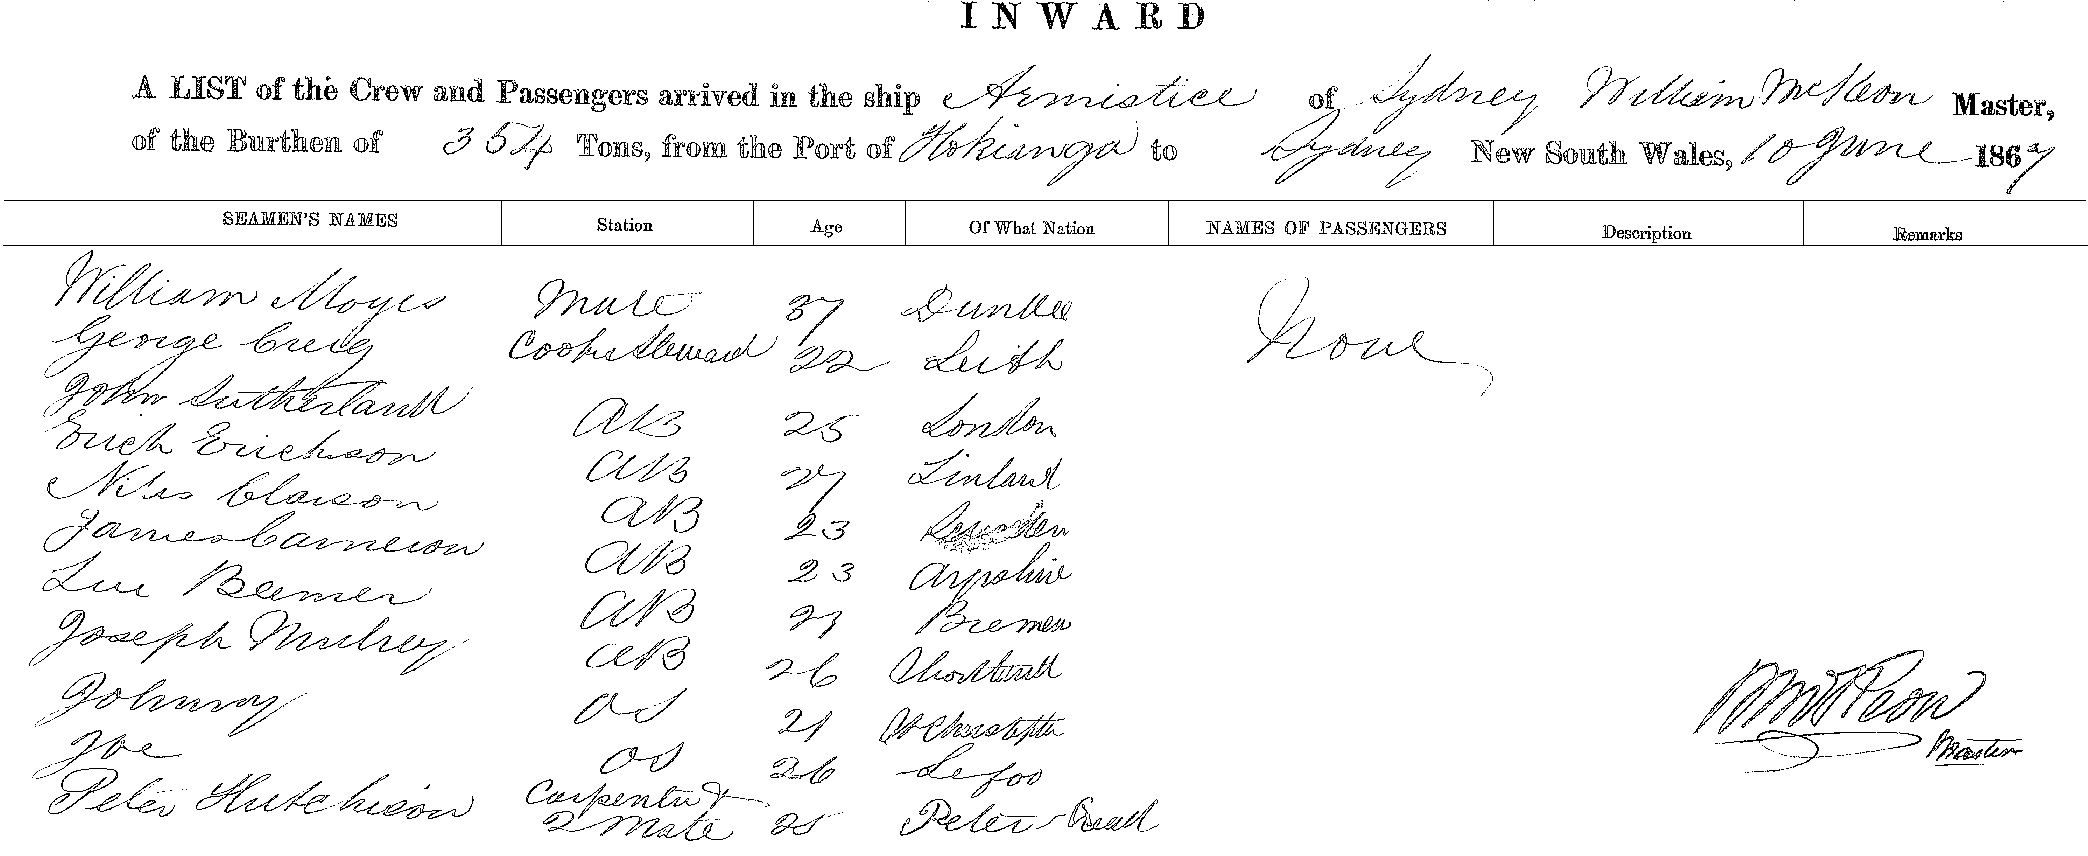 INWARD
A LIST of the Crew and Passengers arrived in the ship Armistice of Sydney William McKeon Master,
of the Burthen of 354 Tons, from the Port of Hokianga to Sydney New South Wales, 10 June 1867
SEAMEN'S NAMES Station Age Of What Nation NAMES OF PASSENGERS Description Remarks
William Moyes Mate 37 Dundee None
George Creig Cook & Steward 22 Leith
John Sutherland AB 25 London
Erick Erickson AB 27 Finland
Niles Claison AB 23
James Cameron AB 23 Argoshire
Beemer AB 23 Bremen
Joseph Mulrey AB 26
Johnny OS 21 St Christopher
Joe OS 26 Lefoo
Peter Hutchison Carpenter & 2 Mate 25 Peter Head
Wm McKeon
Master